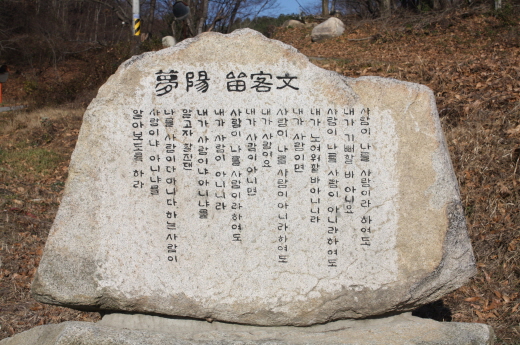 夢陽 客文
사람이 나를 사람이라 하여도
내가 기뻐할 바 아니요
사람이 나를 사람이 아니라 하여도
내가 노여워할 바 아니니라
내가 사람이면
사람이 나를 사람이 아니라 하여도
내가 사람이요
내가 사람이 아니면
사람이 나를 사람이라 하여도
내가 사람이 아니니라
내가 사람이냐 아니냐를
알고자 할진댄
나를 사람이다 아니다 하는 사람이
사람이냐 아니냐를
알아보도록 하라